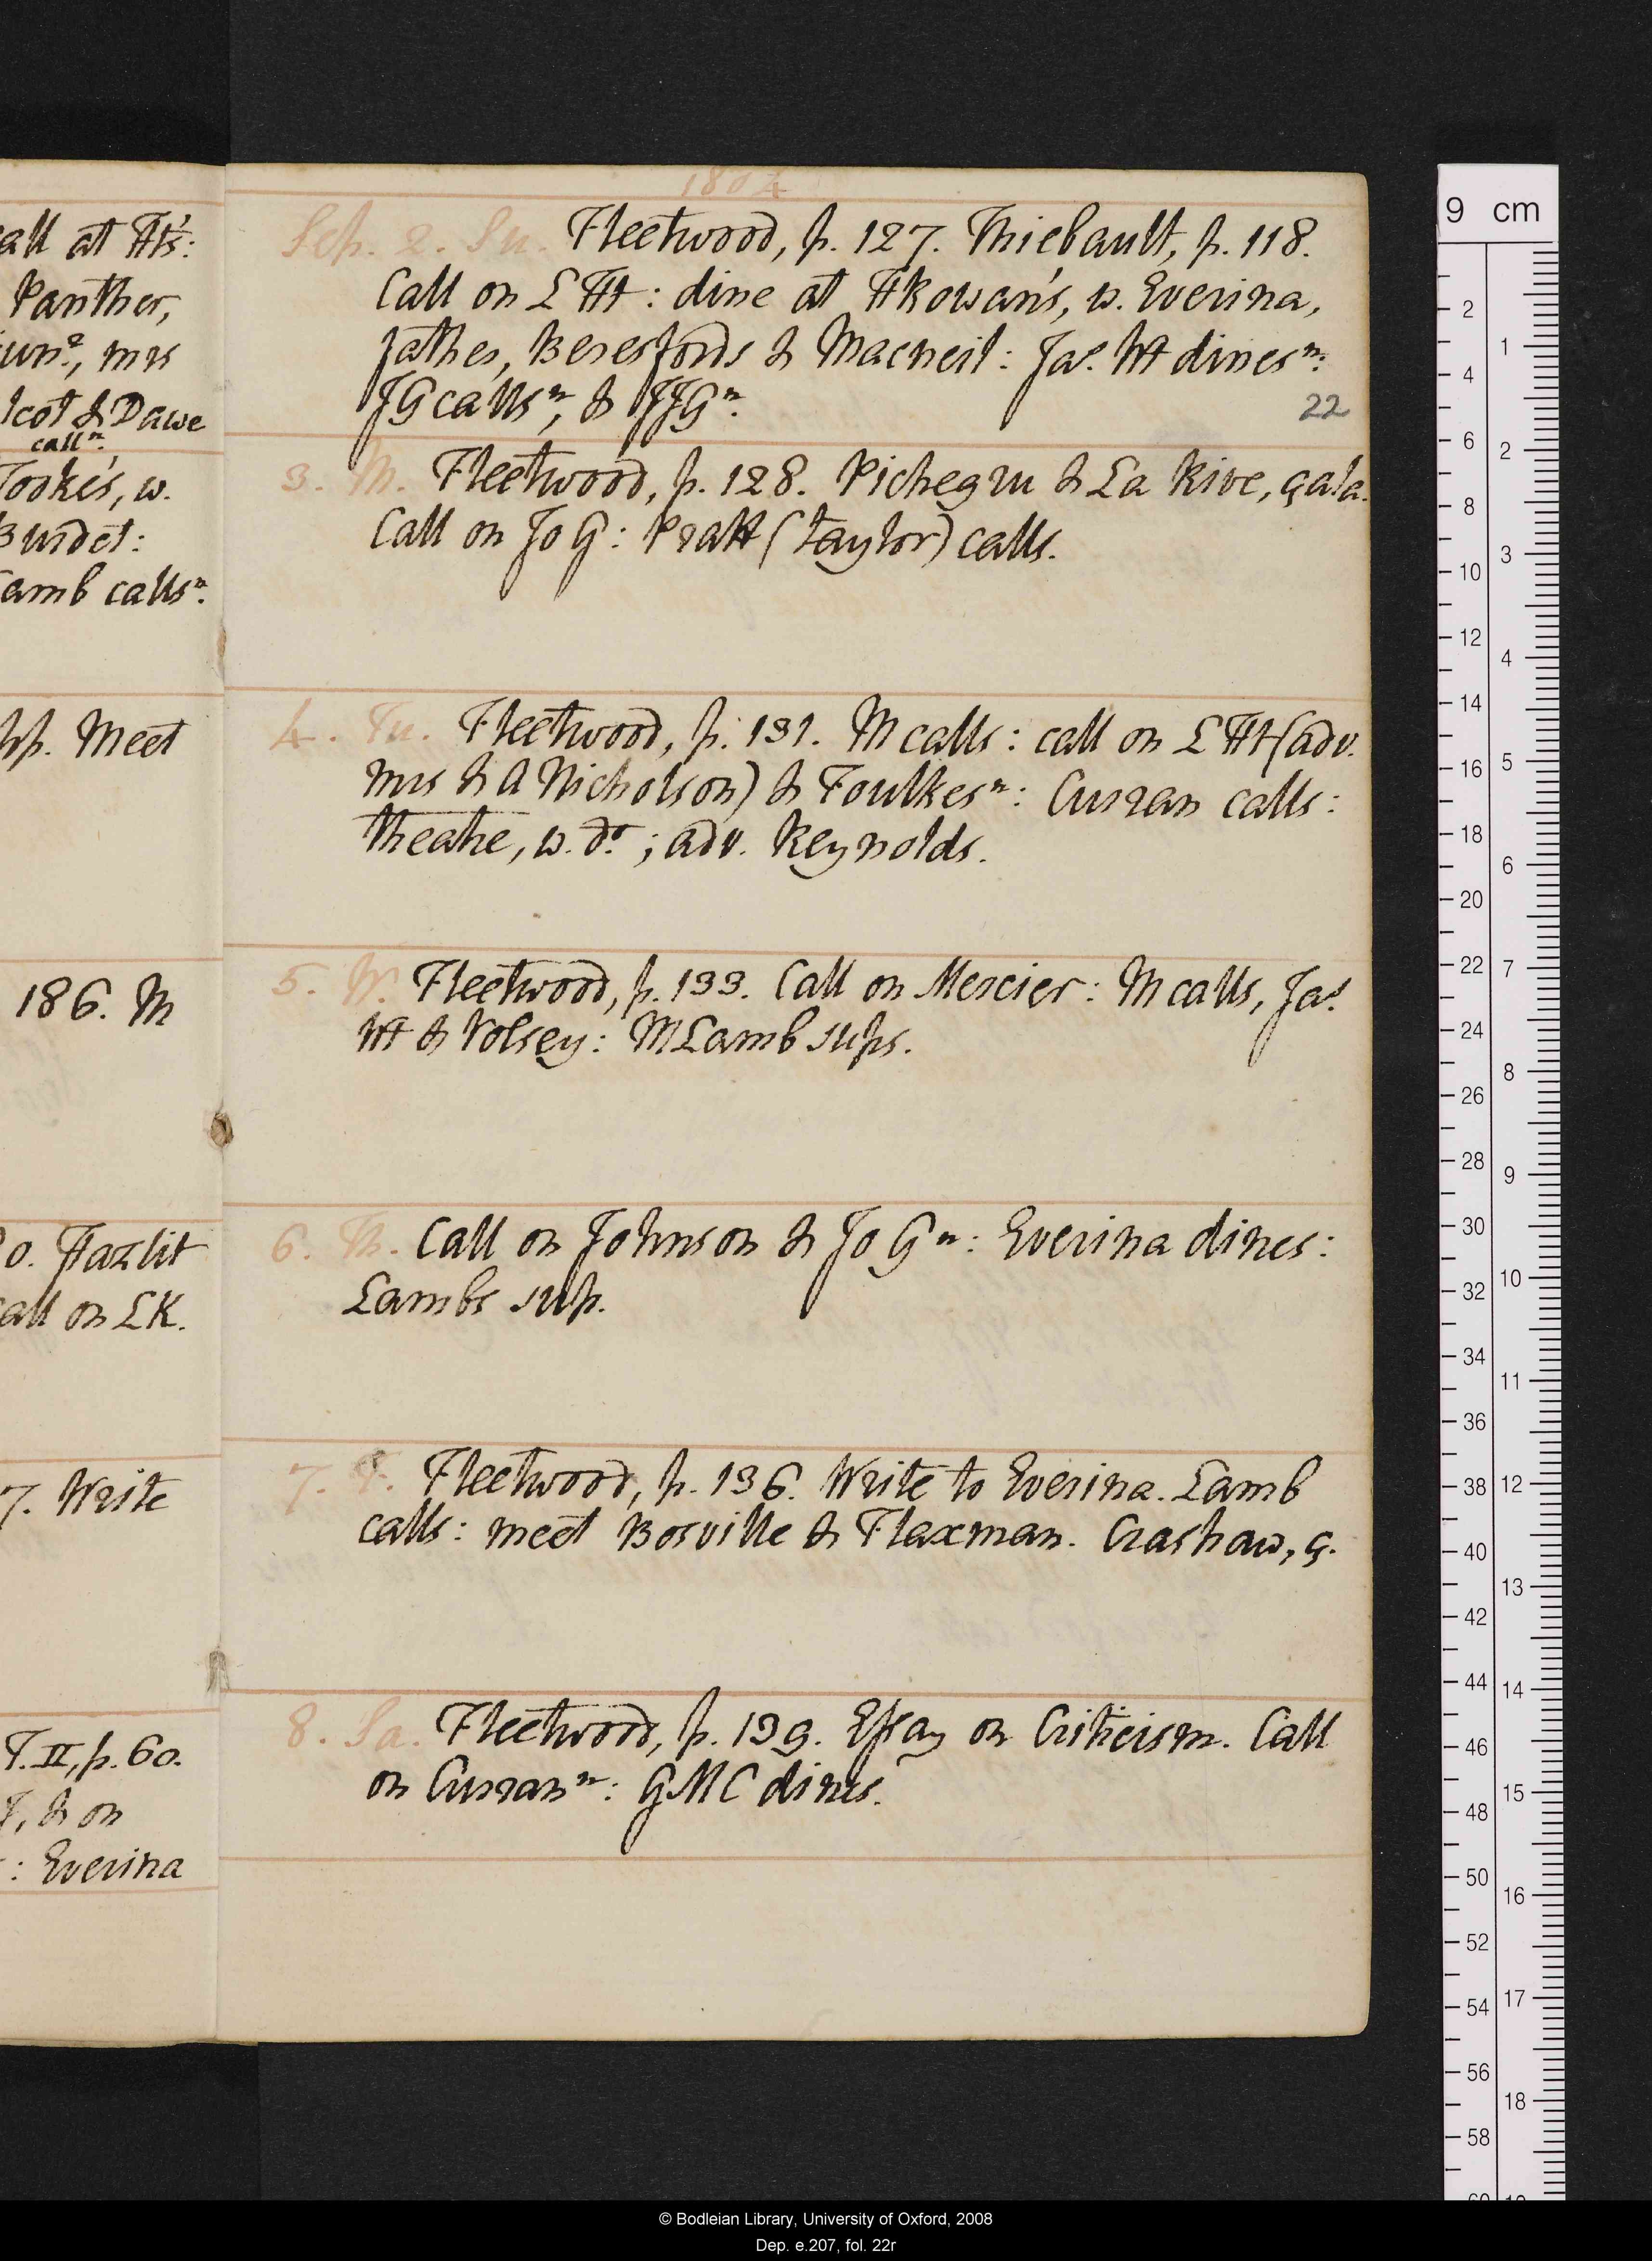 all at Ht's:
Panther,
unr, mrs
lcot & Dawe
calln.
Tooke's, w.
Burdet:
Lamb callsn.
pp. Meet
186. M
o. Hazlit
call on LK.
7. Write
T. II, p. 60.
T, & on
: Everina
1804
Sep. 2. Su. Fleetwood, p. 127. Thiebault, p. 118.
Call on L Ht: dine at HRowan's, w. Everina,
father, Beresfords & Macneil: Jas. Wt dinesn:
JG callsn, & JJGn.
22
3. M. Fleetwood, p. 128. Pichegru & La Rive, çala.
Call on Jo G: Pratt (Taylor) calls.
4. Tu. Fleetwood, p. 131. M calls: call on L Ht (adv.
mrs & A Nicholson) & Foulkesn: Curran calls:
theatre, w. do; adv. Reynolds.
5. W. Fleetwood, p. 133. Call on Mercier: M calls, Jas.
Wt & Volsey: MLamb sups.
6. Th. Call on Johnson & Jo Gn: Everina dines:
Lambs sup.
7. F. Fleetwood, p. 136. Write to Everina. Lamb
calls: meet Bosville & Flaxman. Crashaw, ç.
8. Sa. Fleetwood, p. 139. Essay on Criticism. Call
on Currann: GMC dines.
9 cm
2
4
6
8
10
12
14
16
18
20
22
24
26
28
30
32
34
36
38
40
42
44
46
48
50
52
54
56
58
1
2
3
4
5
6
7
8
9
10
11
12
13
14
15
16
17
18
© Bodleian Library, University of Oxford, 2008
Dep. e.207, fol. 22r